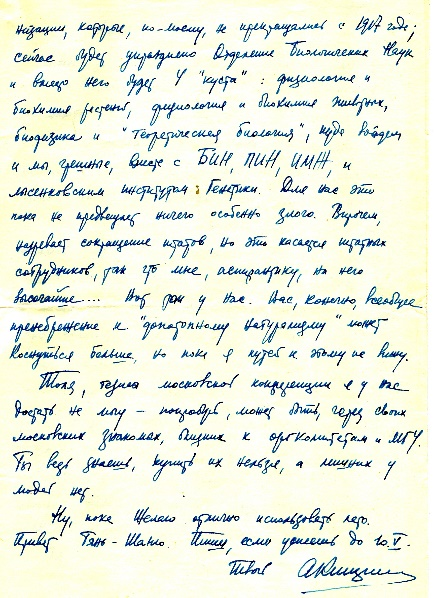 низации, которые, по-моему, не прекращались с 1917 года;
сейчас будет упразднено Отделение Биологических Наук
и вместо него будет 4 "куста": физиология и
биохимия растений, физиология и биохимия животных,
биофизика и "теоретическая биология", куда войдем
и мы, грешные, вместе с БИН, ПИН, ИМЖ, и
лысенковским институтом Генетики. Для нас это
пока не предвещает ничего особенно злого. Впрочем,
назревает сокращение штатов, но это касается штатных
сотрудников, так что мне, аспирантику, на него
Вот так у нас. Вас, конечно, всеобщее
пренебрежение к "допотопному натурализму" может
коснуться больше, но пока я путей к этому не вижу.
Толя, тезиса московской конференции я у нас
достать не могу — попробуй, может быть, через своих
московских знакомых, близких к оргкомитетам и МГУ.
Ты ведь знаешь, купить их нельзя, а лишних у
людей нет.
Ну, пока Желаю отлично использовать лето.
Привет Тянь-Шаню. Пиши, если успеешь до 10.V.
Твой